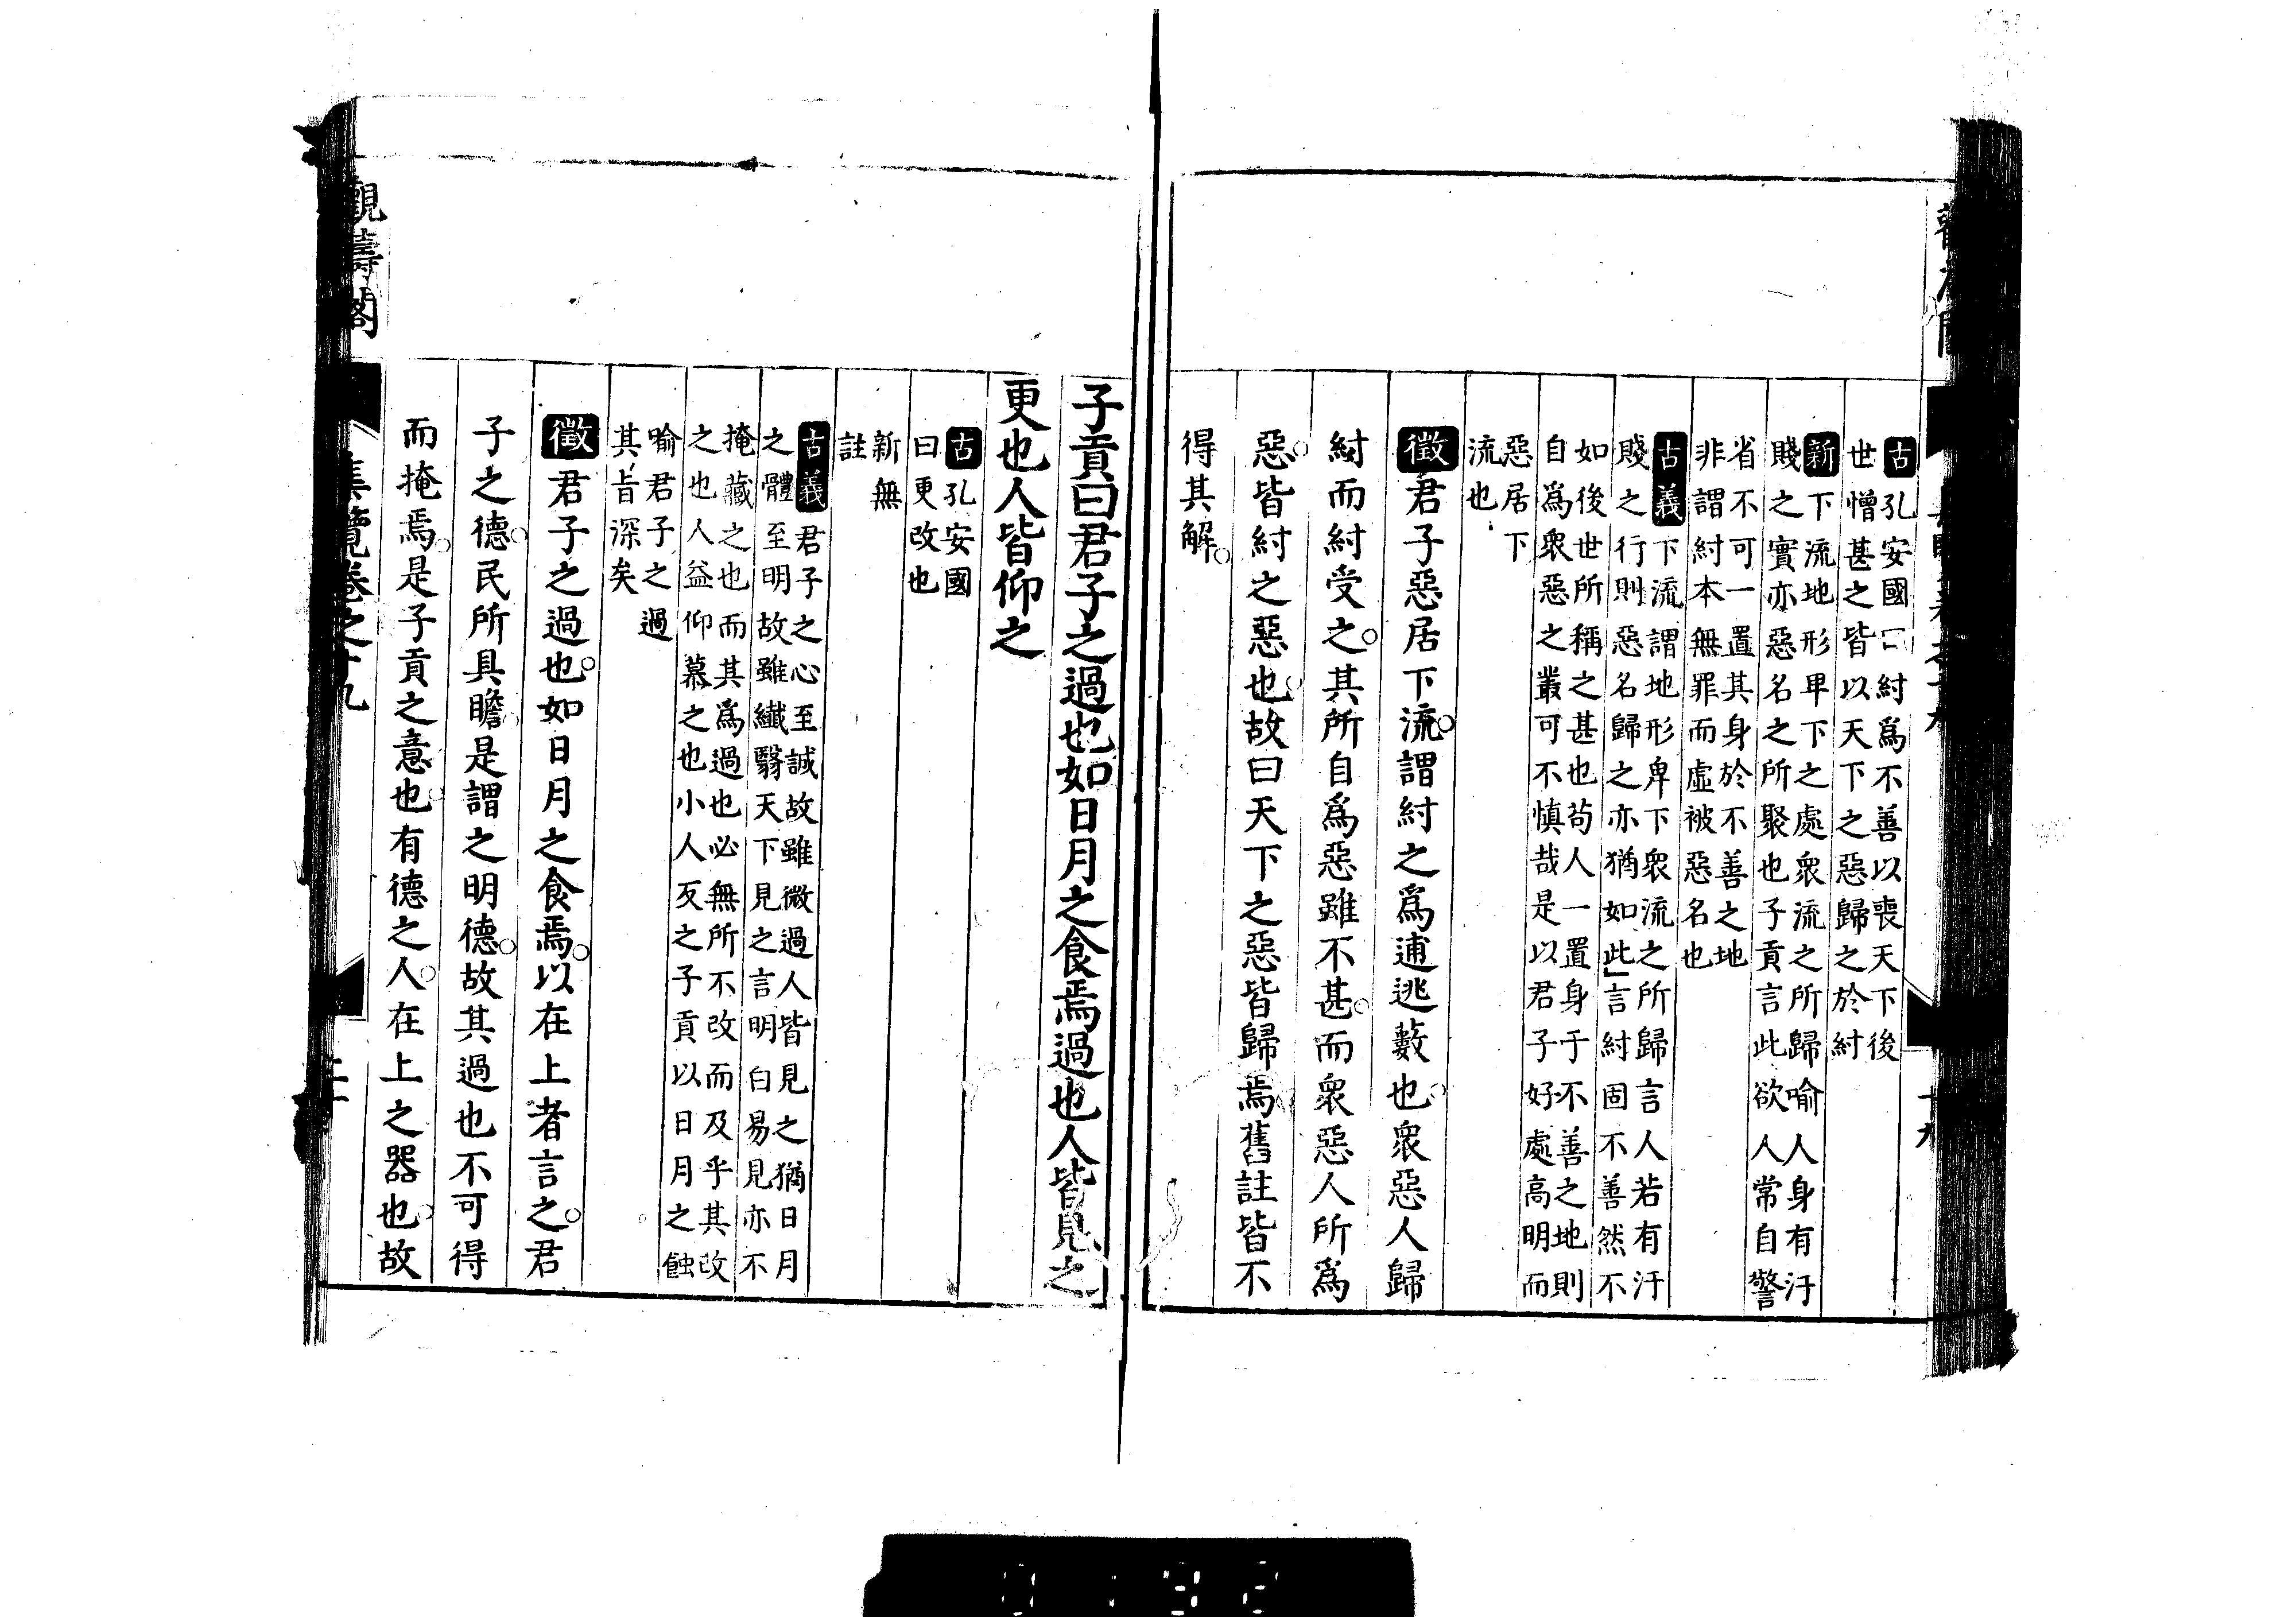 古孔安國曰紂爲不善以喪天下後
世憎甚之皆以天下之惡歸之於紂
新下流地形卑下之處衆流之所歸喻人身有汙
賤之實亦惡名之所聚也子貢言此欲人常自警
省不可一置其身於不善之地
非謂紂本無罪而虛被惡名也
古義下流謂地形卑下衆流之所歸言人若有汙
賤之行則惡名歸之亦猶如此」言紂固不善然不
如後世所稱之甚也苟人一置身于不善之地則
自爲衆惡之叢可不慎哉是以君子好處高明而
惡居下
流也
徵君子惡居下流。謂紂之爲逋逃藪也。衆惡人歸
紂而紂受之。其所自爲惡雖不甚。而衆惡人所爲
惡。皆紂之惡也。故曰天下之惡皆歸焉。舊註皆不
得其解。
十九
子貢曰君子之過也如日月之食焉過也人皆見之
更也人皆仰之
古孔安國
曰更改也
新無
註
古義君子之心至誠故雖微過人皆見之猶日月
之體至明故雖纖翳天下見之言明白易見亦不
掩藏之也而其爲過也必無所不改而及乎其改
之也人益仰慕之也小人反之子貢以日月之蝕
喻君子之過
其旨深矣
徵君子之過也。如日月之食焉。以在上者言之。君
子之德。民所具瞻。是謂之明德。故其過也不可得
而掩焉。是子貢之意也。有德之人。在上之器也。故
觀濤閣
集覽卷之十九
0192